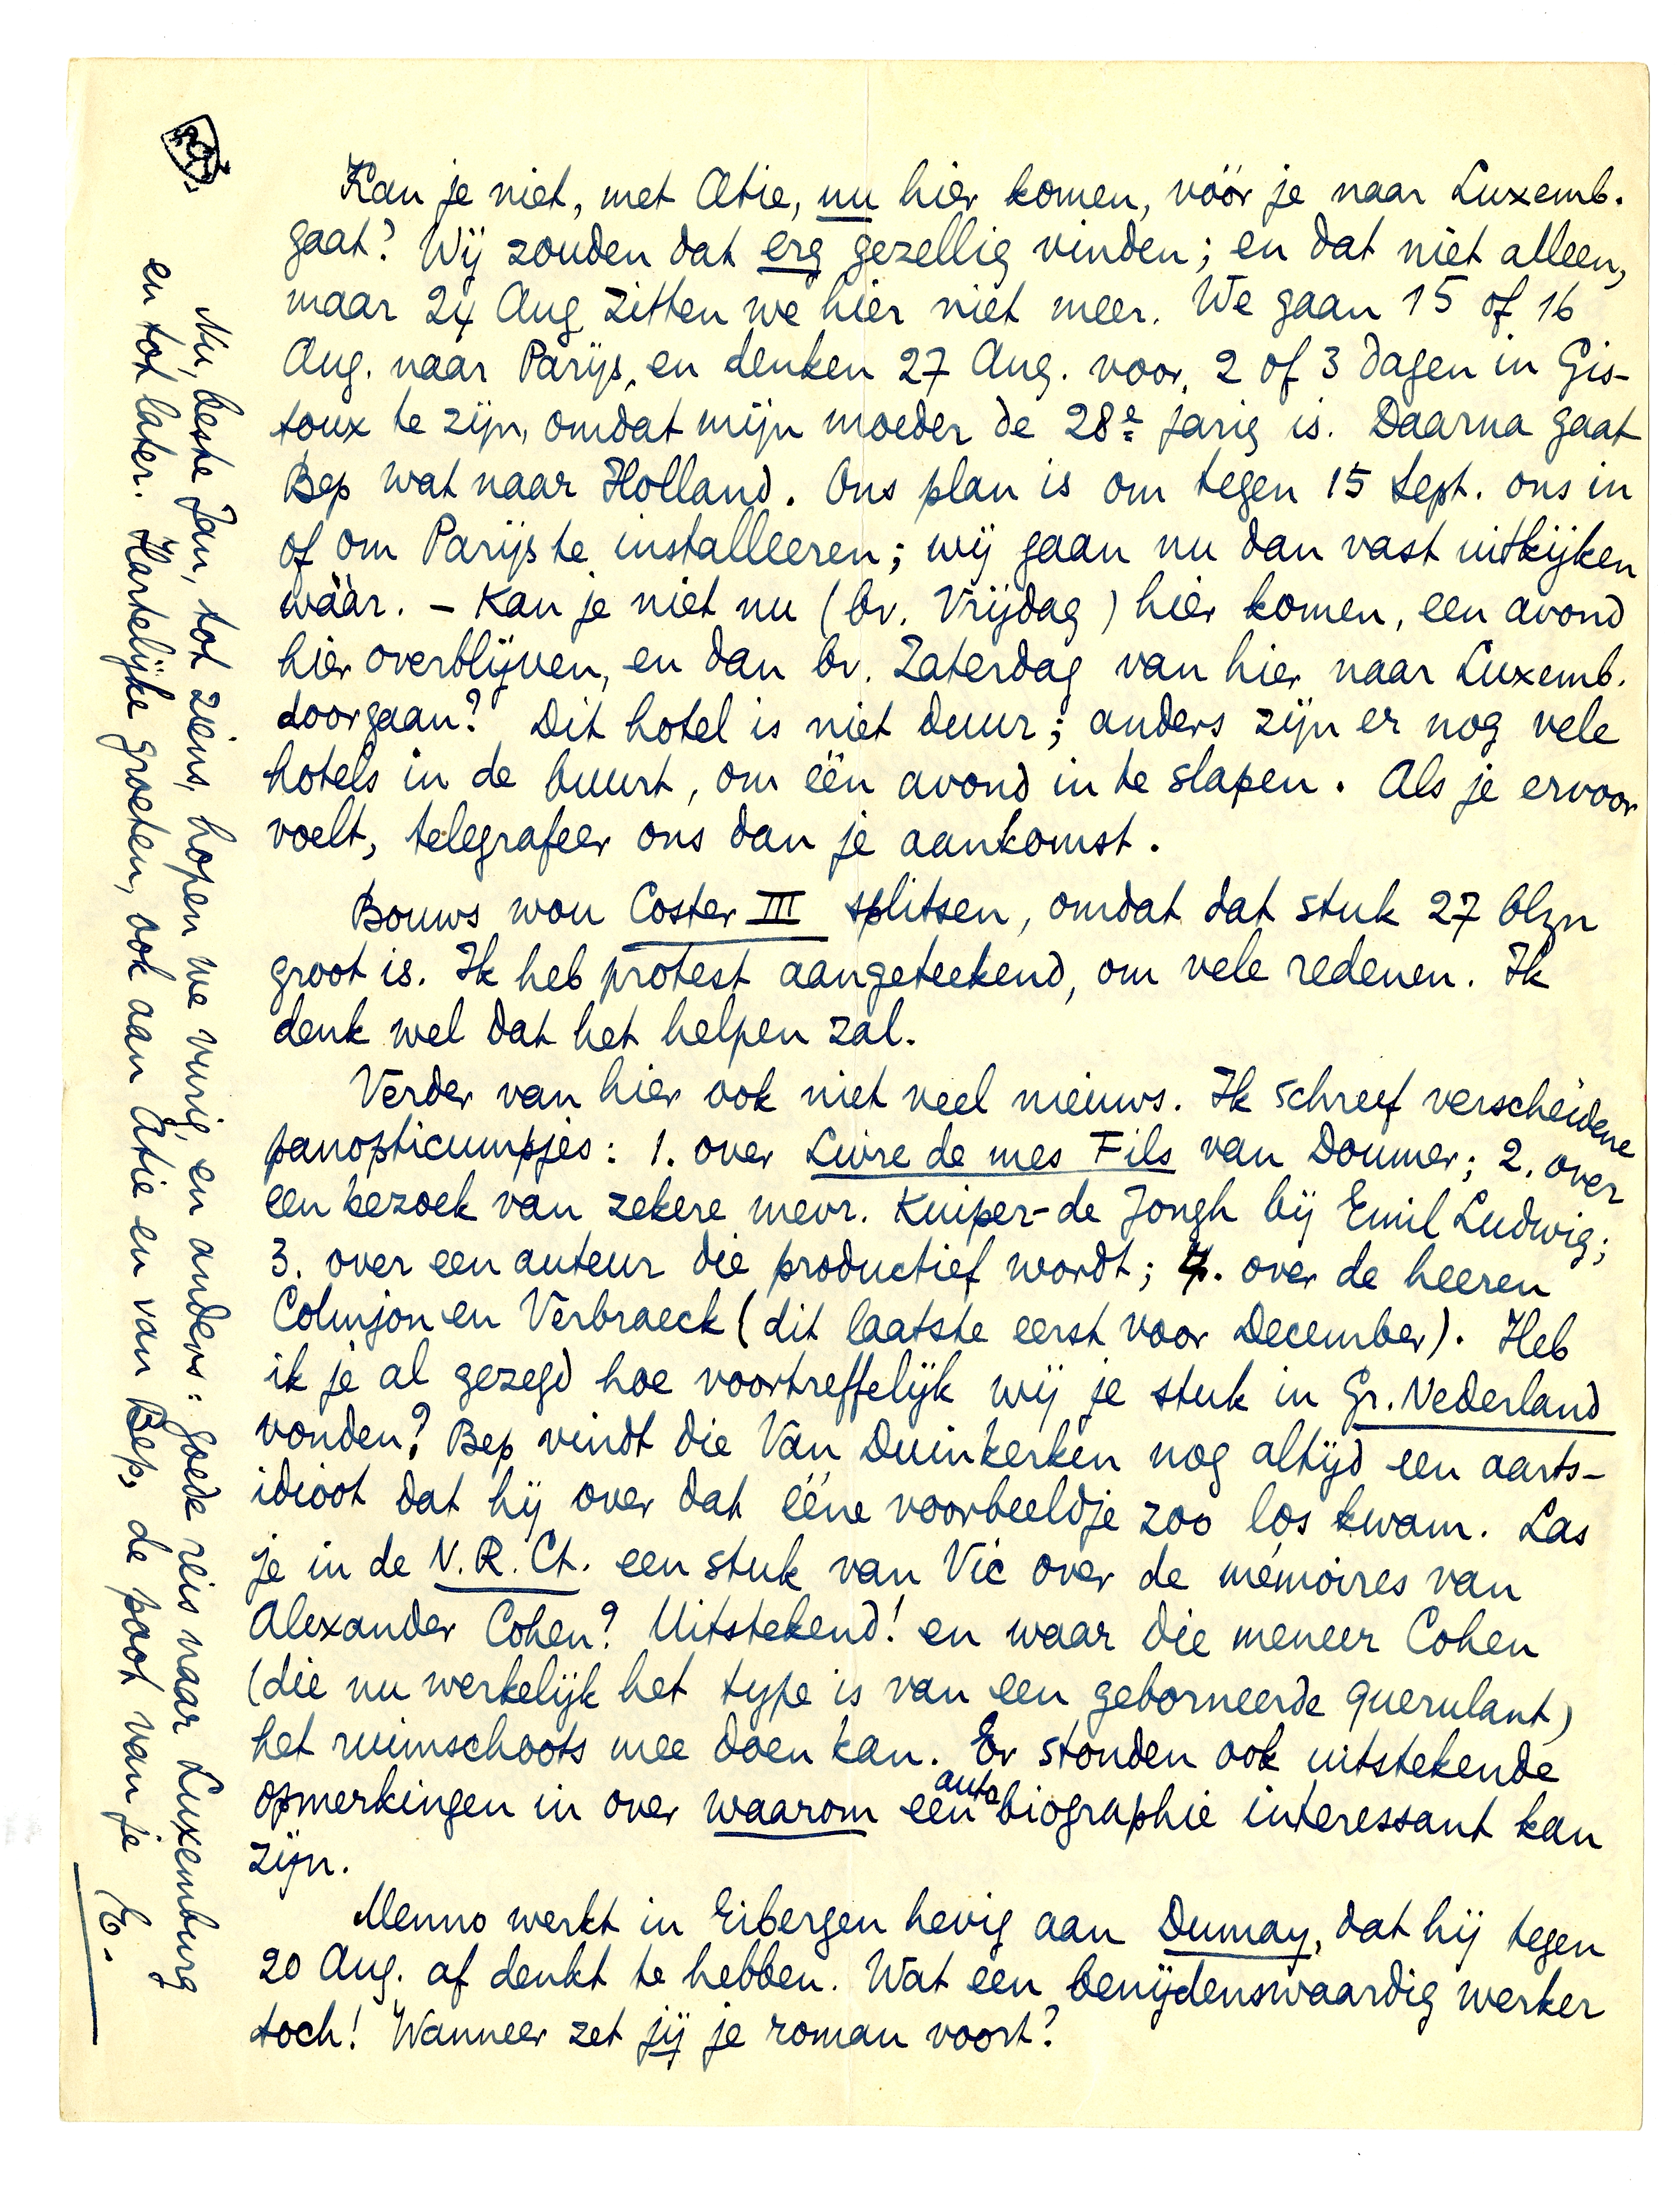 Kan je niet, met Atie, nu hier komen, vóór je naar Luxemb.
gaat? Wij zouden dat erg gezellig vinden; en dat niet alleen,
maar 24 Aug zitten we hier niet meer. We gaan 15 of 16
Aug. naar Parijs, en denken 27 Aug. voor 2 of 3 dagen in Gis-
toux te zijn, omdat mijn moeder de 28e jarig is. Daarna gaat
Bep wat naar Holland. Ons plan is om tegen 15 Sept. ons in
of om Parijs te installeeren; wij gaan nu dan vast uitkijken
wáár. – Kan je niet nu (bv. Vrijdag) hier komen, een avond
hier overblijven, en dan bv. Zaterdag van hier naar Luxemb.
doorgaan? Dit hotel is niet duur; anders zijn er nog vele
hotels in de buurt, om één avond in te slapen. Als je ervoor
voelt, telegrafeer ons dan je aankomst.
Bouws wou Coster III splitsen, omdat dat stuk 27 blzn
groot is. Ik heb protest aangeteekend, om vele redenen. Ik
denk wel dat het helpen zal.
Verder van hier ook niet veel nieuws. Ik schreef verscheidene
panopticumpjes: 1. over Livre de mes Fils van Doumer; 2. over
een bezoek van zekere mevr. Kuiper-de Jongh bij Emil Ludwig;
3. over een auteur die productief wordt; 4. over de heeren
Colmjon en Verbraeck (dit laatste eerst voor December). Heb
ik je al gezegd hoe voortreffelijk wij je stuk in Gr. Nederland
vonden? Bep vindt die Van Duinkerken nog altijd een aarts-
idioot dat hij over dat ééne voorbeeldje zoo los kwam. Las
je in de N.R.Ct. een stuk van Vic over de mémoires van
Alexander Cohen? Uitstekend! en waar die meneer Cohen
(die nu werkelijk het type is van een geborneerde querulant)
het ruimschoots mee doen kan. Er stonden ook uitstekende
opmerkingen in over waarom een autobiographie interessant kan
zijn.
Menno werkt in Eibergen hevig aan Dumay, dat hij tegen
20 Aug. af denkt te hebben. Wat een benijdenswaardig werker
toch! Wanneer zet jij je roman voort?
Nu, beste Jan, tot ziens, hopen we vurig, en anders: goede reis naar Luxemburg
en tot later. Hartelijke groeten, ook aan Atie en van Bep, de poot van je
E.